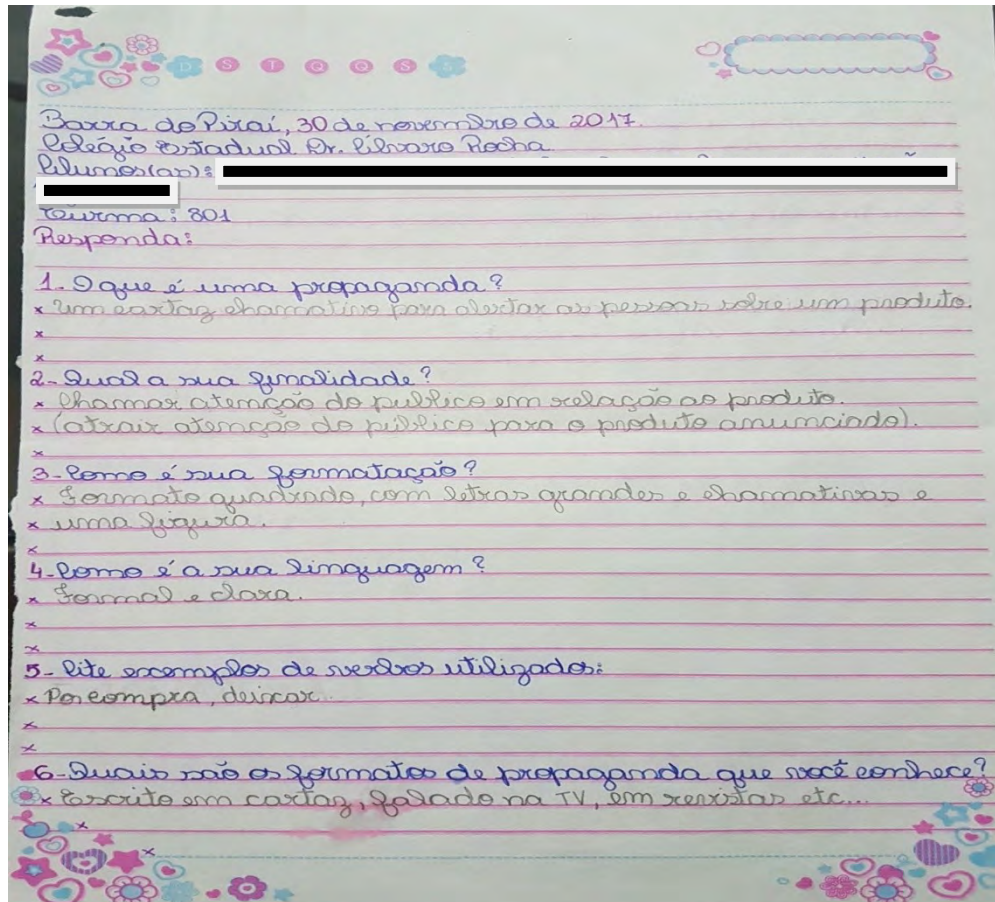 D S T Q Q S S
Barra do Piraí, 30 de novembro de 2017.
Colégio Estadual Dr. Álvaro Rocha
Alunos(as):
Turma: 801
Responda:
1- O que é uma propaganda?
x Um cartaz chamativo para alertar as pessoas sobre um produto.
x
x
2- Qual a sua finalidade?
x Chamar atenção do publico em relação ao produto.
x (atrair atenção do público para o produto anunciado).
x
3- Como é sua formatação?
x Formato quadrado, com letras grandes e chamativas e
x uma figura.
x
4- Como é a sua linguagem?
x Formal e clara.
x
x
5- Cite exemplos de verbos utilizados:
x Por compra, deixar.
x
x
6- Quais são os formatos de propaganda que você conhece?
x Escrito em cartaz, falado na TV, em revistas etc...
x
x